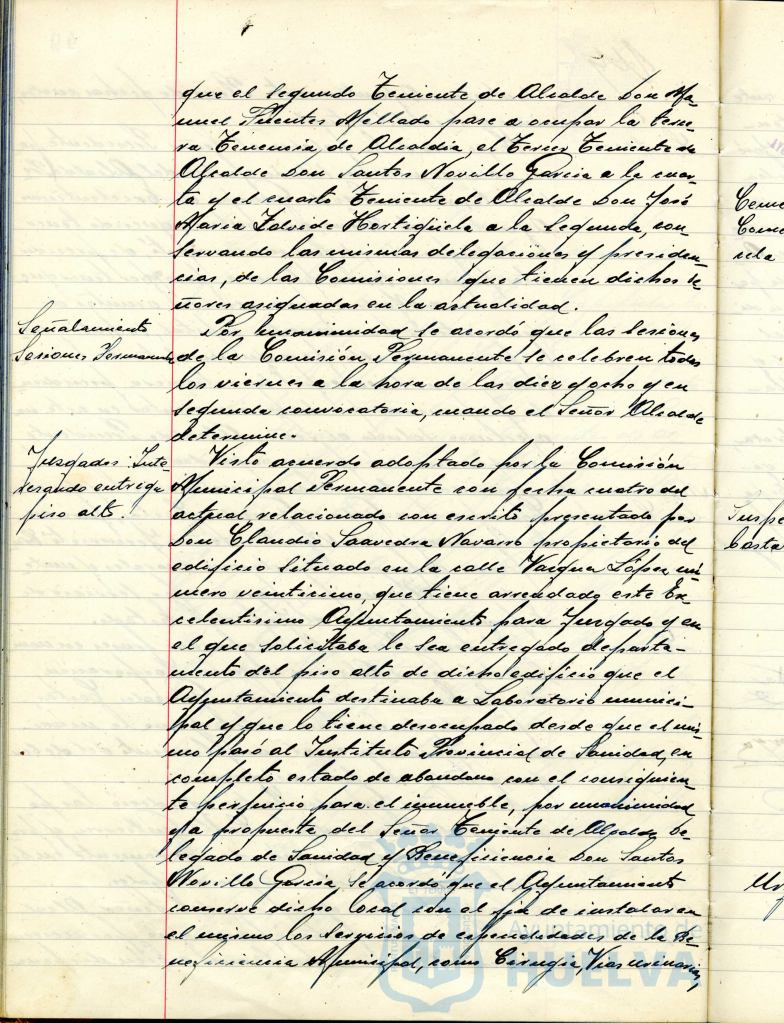 que el Segundo Teniente de Alcalde Don Ma-
nuel Fuentes Mellado pase a ocupar la terce-
ra Tenencia de Alcaldia, el Tercer Teniente de
Alcalde Don Santos Novillo Garcia a la cuar-
ta y el cuarto Teniente de Alcalde Don José
Maria Hortigüela a la Segunda, con-
servando las mismas delegaciones y presiden-
cias, de las Comisiones que tienen dichos Se-
ñores asignadas en la actualidad.
Señalamiento
Sesiones Permanente
Por unanimidad se acordó que las Sesiones
de la Comisión Permanente se celebren todos
los viernes a la hora de las diez y ocho y en
segunda convocatoria, cuando el Señor Alcalde
determine.
Juzgados: Inte-
resando entrega
piso alto.
Visto acuerdo adoptado por la Comisión
Municipal Permanente con fecha cuatro del
actual relacionado con escrito presentado por
Don Claudio Saavedra Navarro propietario del
edificio situado en la calle Vazquez López nú-
mero veinticinco, que tiene arrendado este Ex-
celentisimo Ayuntamiento para Juzgado y en
el que solicitaba le sea entregado departa-
mento del piso alto de dicho edificio que el
Ayuntamiento destinaba a Laboratorio munici-
pal y que lo tiene desocupado desde que el mis-
mo pasó al Instituto Provincial de Sanidad, en
completo estado de abandono con el consiguien-
te perjuicio para el inmueble, por unanimidad
y a propuesta del Señor Teniente de Alcalde De-
legado de Sanidad y Beneficencia Don Santos
Novillo Garcia se acordó que el Ayuntamiento
conserve dicho local con el fin de instalar en
el mismo los Servicios de especialidades de la Be-
neficiencia Municipal, como Cirugia, Vias urinarias,
Ayuntamiento de
HUELVA